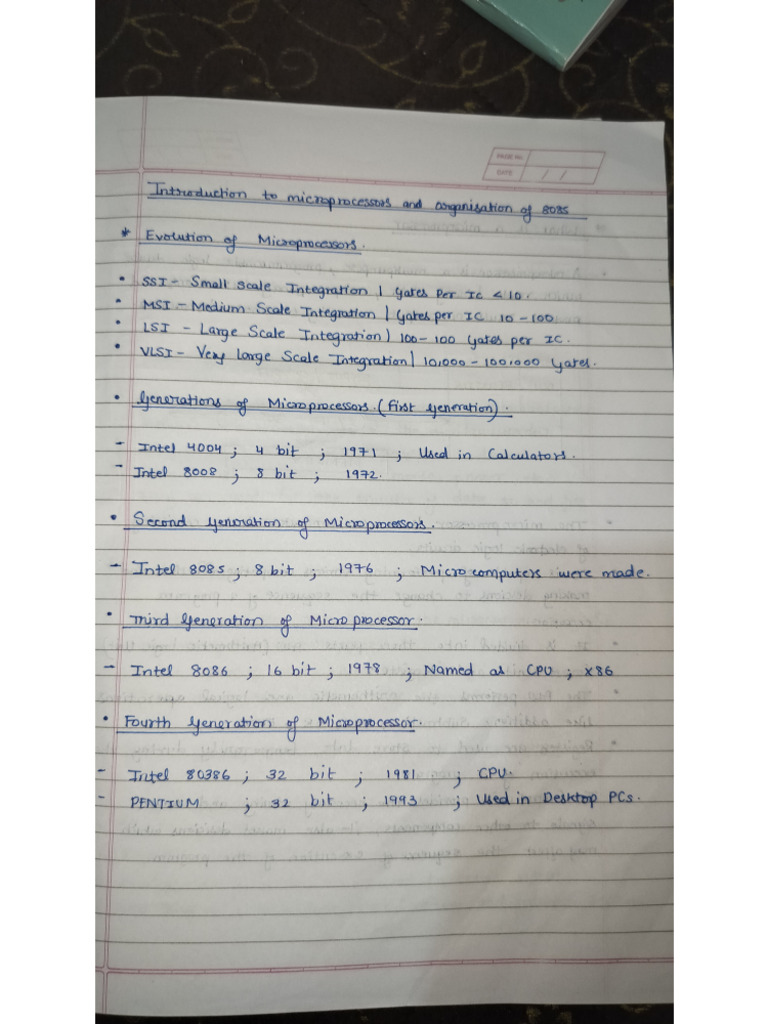 PAGE No.
DATE / /
Introduction to microprocessors and organisation of 8085
* Evolution of Microprocessors.
• SSI - Small scale Integration | Gates Per Ic < 10.
• MSI - Medium Scale Integration | Gates per IC 10 - 100.
• LSI - Large Scale Integration | 100 - 100 Gates per IC.
• VLSI - Very Large Scale Integration | 10,000 - 100,000 Gates.
• Generations of Microprocessors. (First Generation).
- Intel 4004 ; 4 bit ; 1971 ; Used in Calculators.
- Intel 8008 ; 8 bit ; 1972.
• Second Generation of Microprocessors.
- Intel 8085 ; 8 bit ; 1976 ; Microcomputers were made.
• Third Generation of Microprocessor.
- Intel 8086 ; 16 bit ; 1978 ; Named as CPU ; x86
• Fourth Generation of Microprocessor.
- Intel 80386 ; 32 bit ; 1981 ; CPU.
- PENTIUM ; 32 bit ; 1993 ; Used in Desktop PCs.